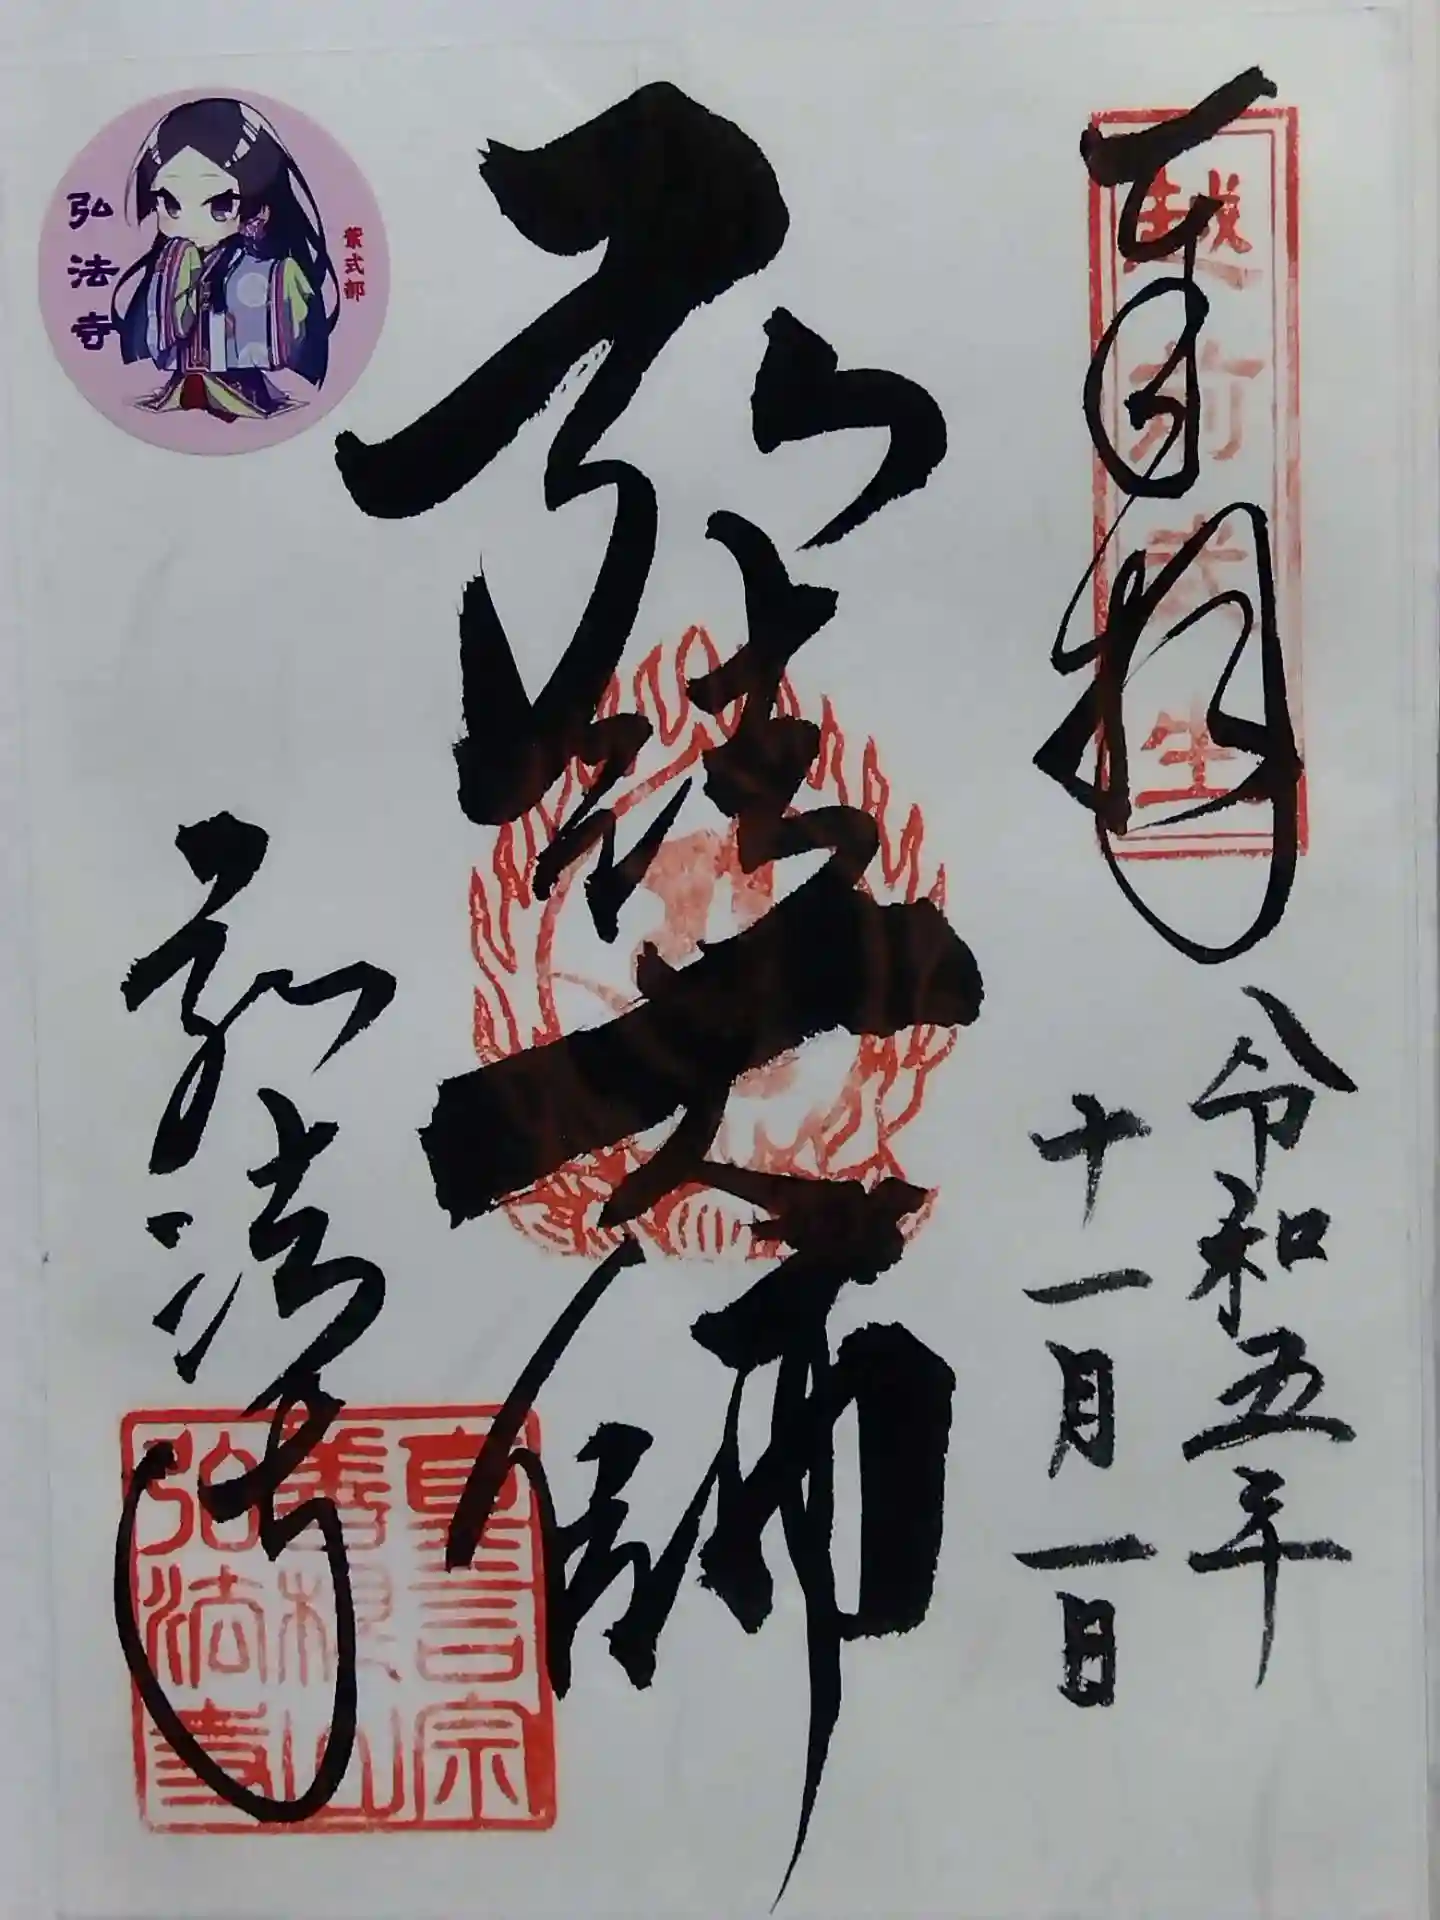 奉拝
越前武生
令和五年
十一月一日
弘法大師
弘法寺
真言宗
善根山
弘法寺
紫式部
弘法寺